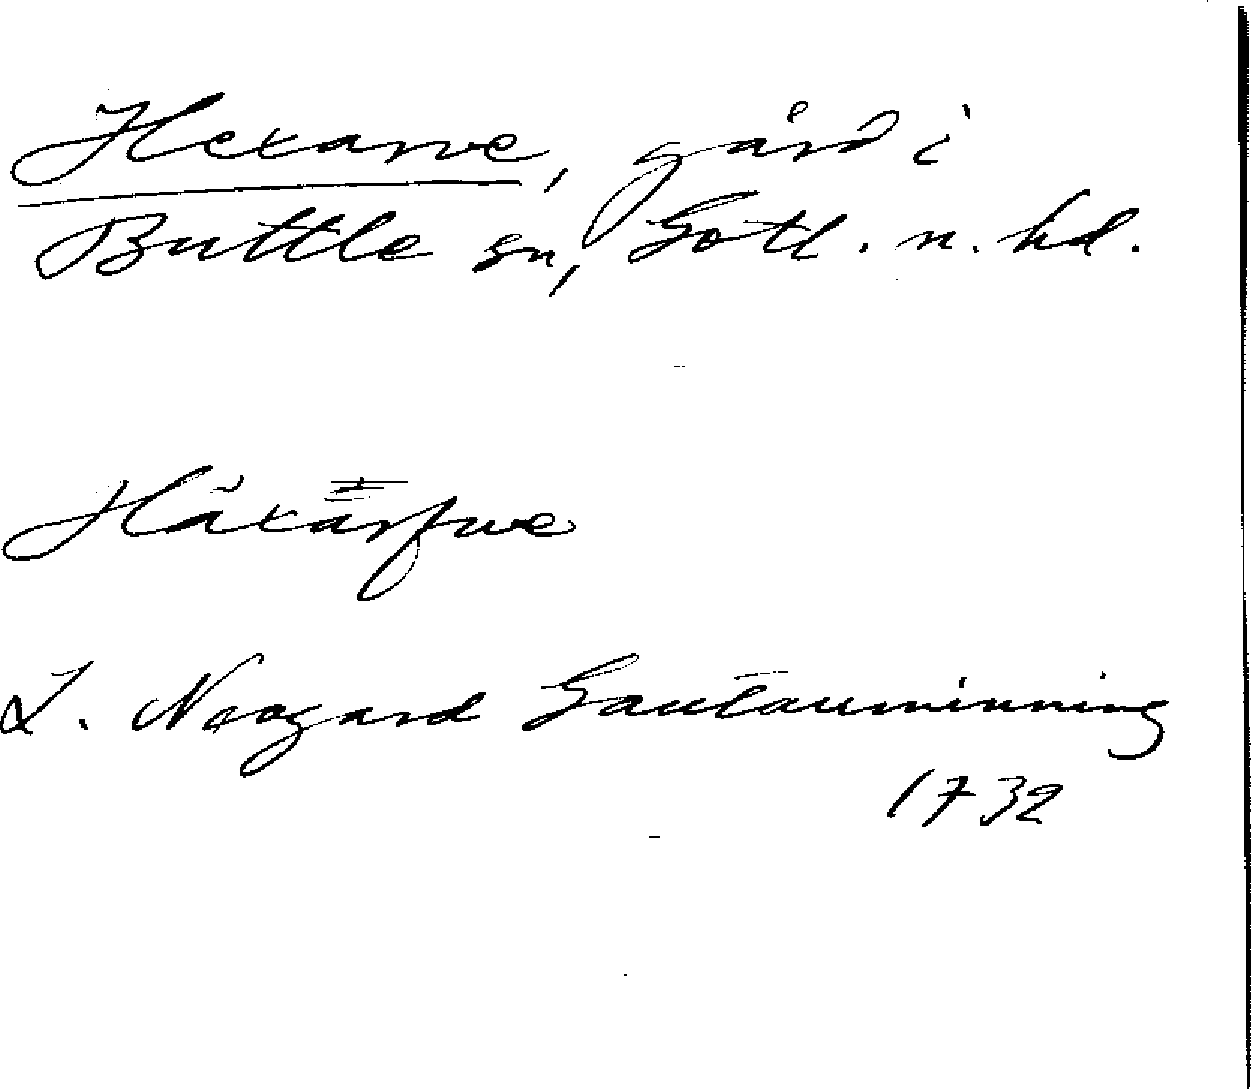 Hexarve, gård i
Buttle sn, Gotl. n. hd.
Häxärfwe
L. Neogard Gautauminning
1732